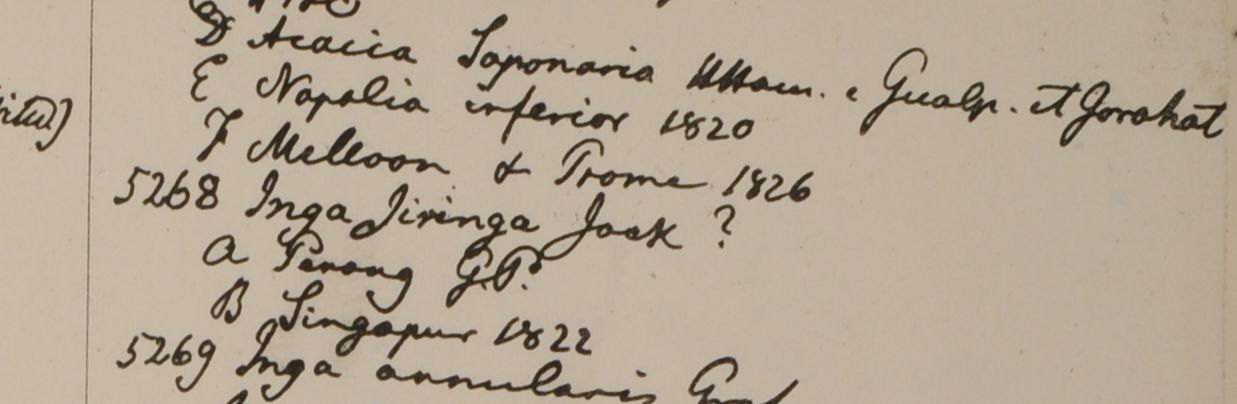 D Acacia Saponaria HHam. e Gualp. et Gorahat
E Napalia inferior 1820
F Melloon & Prome 1826
5268 Inga Jiringa Jack ?
a Penang G.P.
B Singapur 1822
5269 Inga annularis